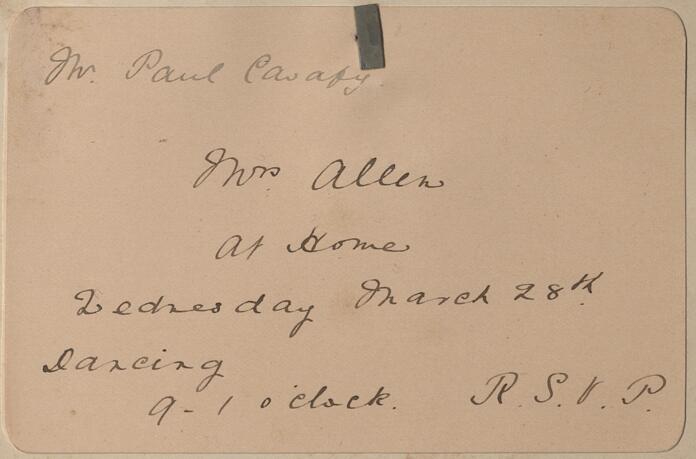 Mr. Paul Cavafy.
Mrs Allen
At Home
Wednesday March 28th.
Dancing
9-1 o'clock. R.S.V.P.